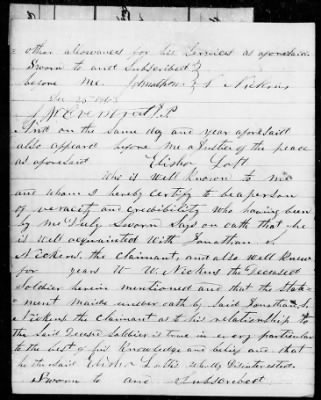 other allowances for his Services as aforesaid.
Sworn to and Subscribed }
before me. Jonathan } S Nickens
J.P.
And on the same day and year aforesaid
also appeared before me a Justice of the peace
as aforesaid Elisha Loft
Who is well known to me
and whom I hereby certify to be a person
of veracity and credibility Who having been
by me Duly Sworn Says on oath that he
is Well acquainted With Jonathan S.
Nickens, the Claimant, and also Well Knew
for years W. W. Nickens the Deceased
Soldier herein mentioned and that the State-
ment made under oath by Said Jonathan S.
Nickens the Claimant as to his relationship to
the Said Soldier is true in every particular
to the best of his Knowledge and belief and that
he the Said Elisha Loft is Wholly Disinterested.
Sworn to and Subscribed